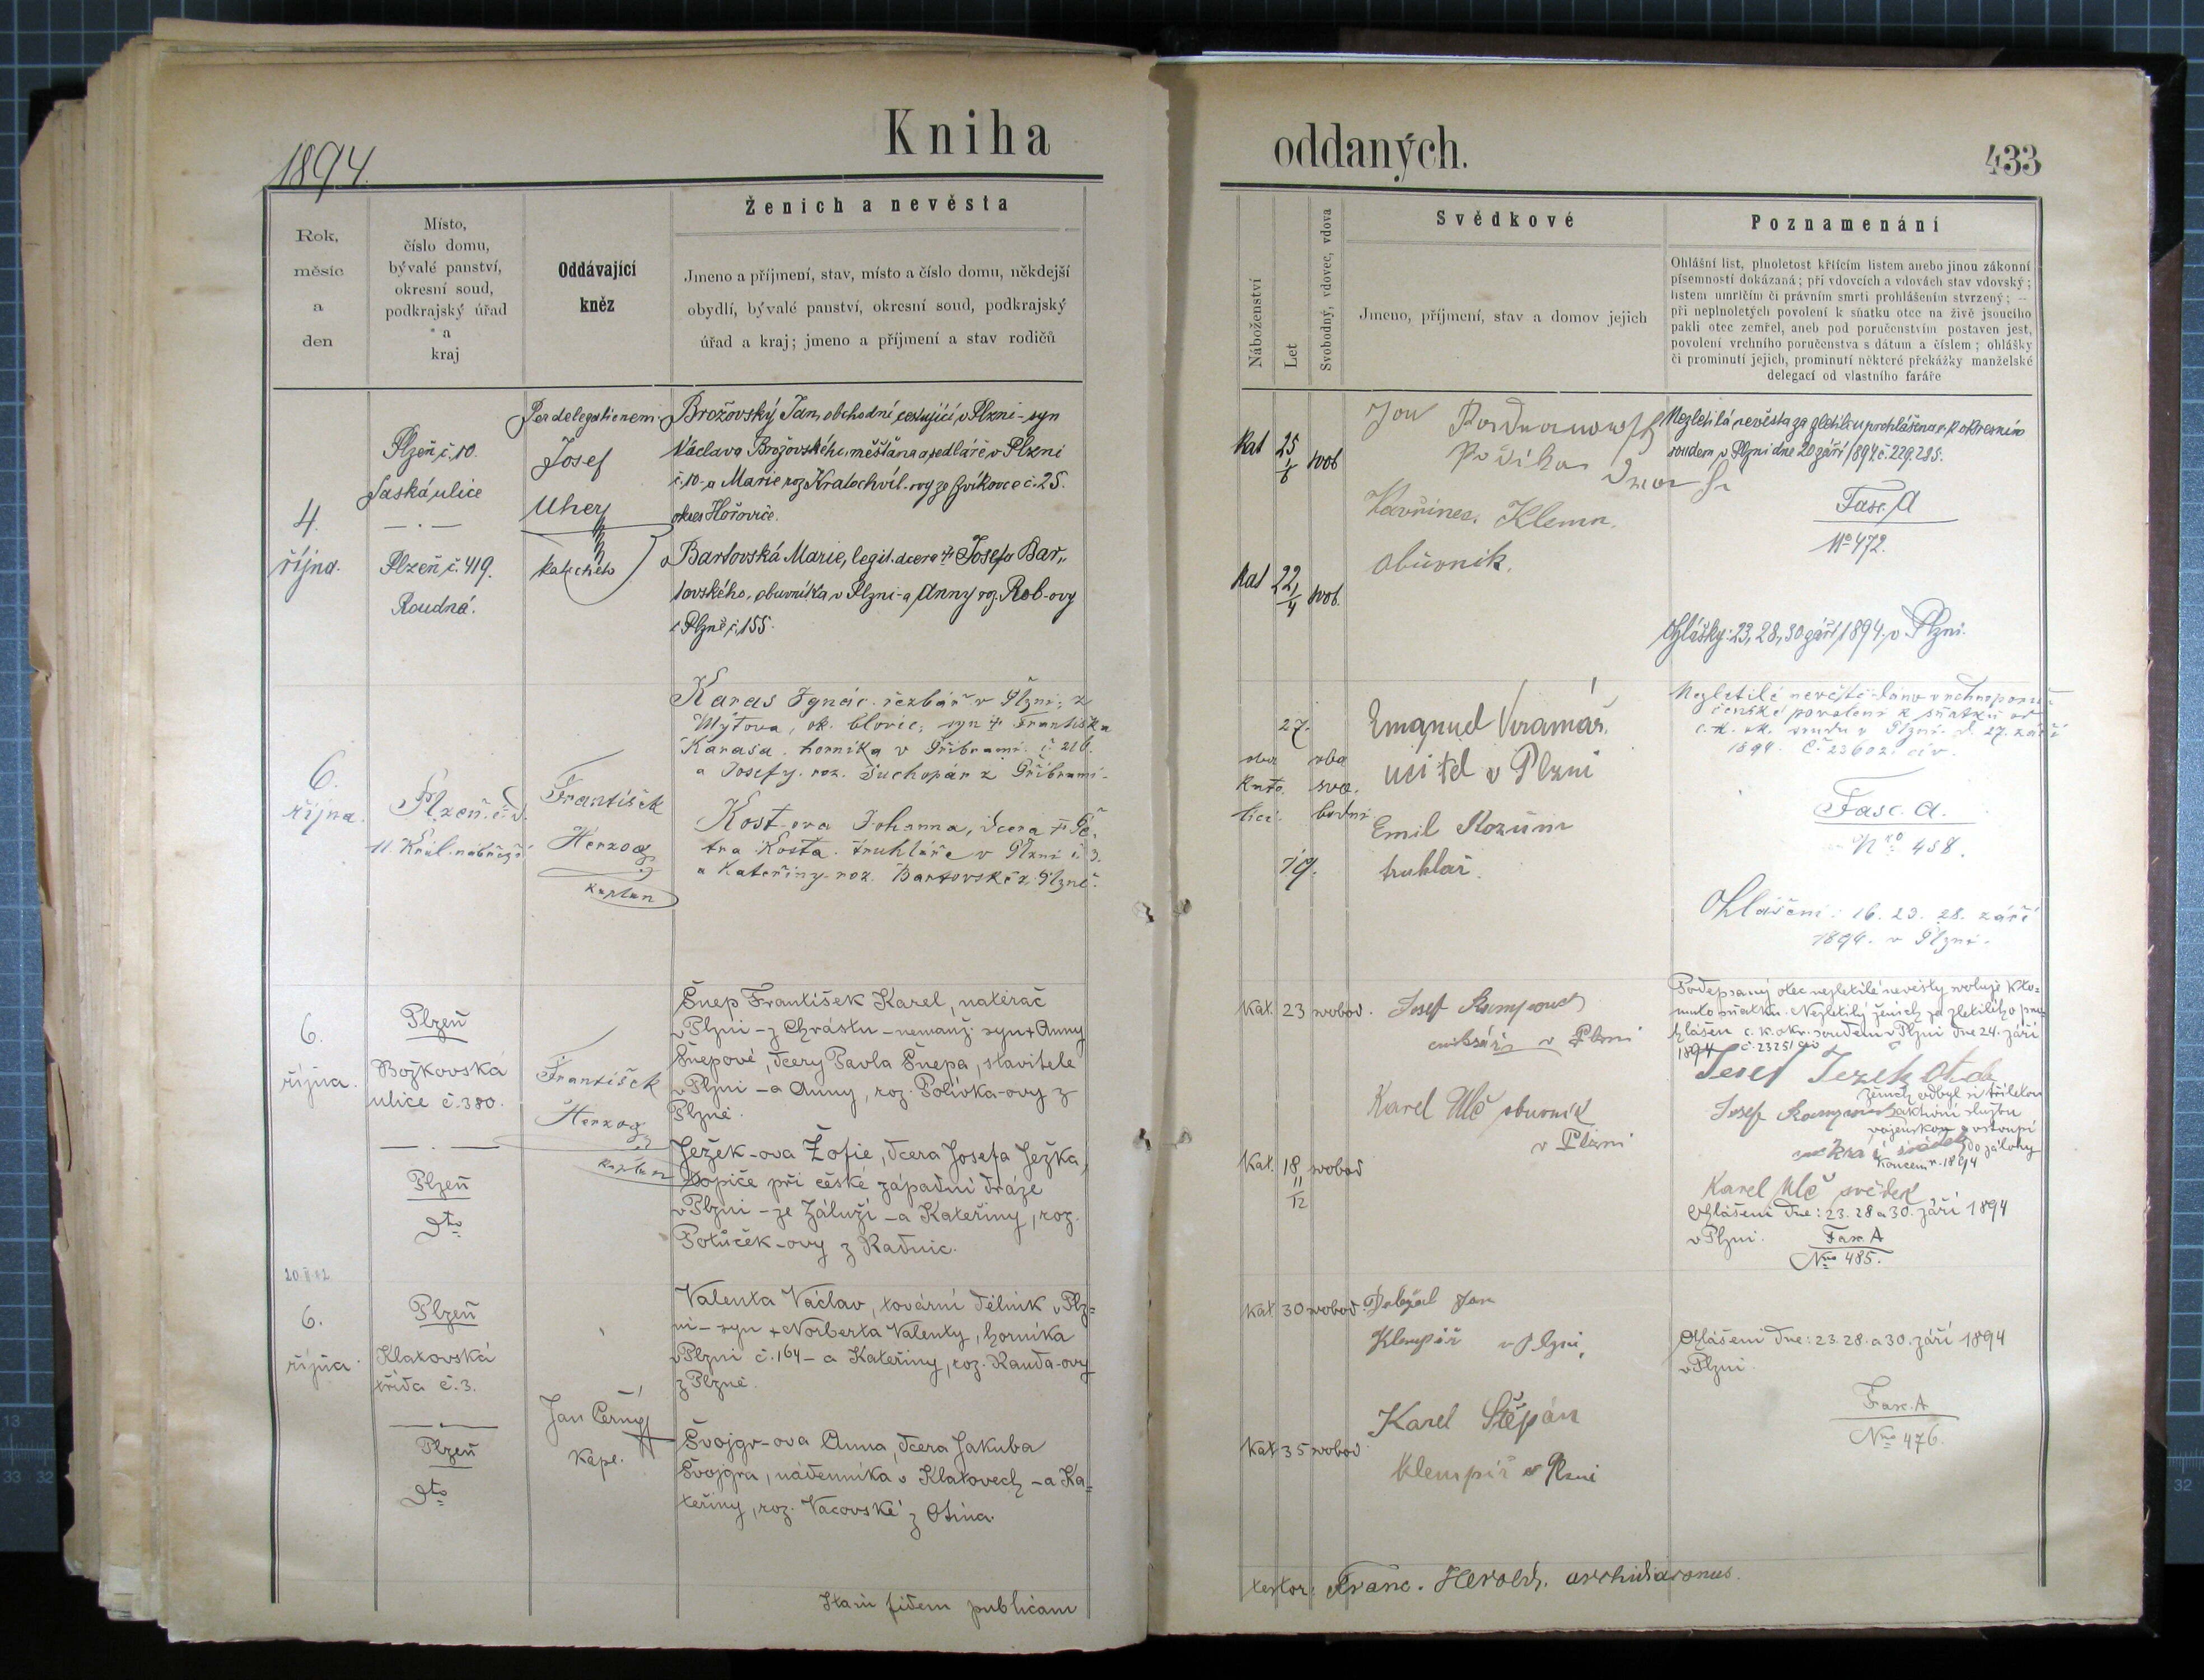 Kniha
1894.
Rok,
měsíc
a
den
Místo,
číslo domu,
bývalé panství,
okresní soud,
podkrajský úřad
a
kraj
Oddávající
kněz
Ženich a nevěsta
Jmeno a příjmení, stav, místo a číslo domu, někdejší
obydlí, bývalé panství, okresní soud, podkrajský
úřad a kraj; jmeno a příjmení a stav rodičů
4.
října.
Plzeň, č. 10.
Saská ulice
Plzeň č. 419.
Roudná.
Per delegationem.
Josef
Uher
katecheta
Brožovský Jan, obchodní cestující v Plzni - syn
Václava Brožovského, měšťana a sedláře v Plzni
č. 10 - a Marie roz. Kratochvíl-ovy ze Zvíkovce č. 25.
okres Hořovice.
Bartovská Marie, legit. dcera † Josefa Bar„
tovského, obuvníka v Plzni - a Anny roz. Rob-ovy
z Plzně č. 155.
6.
října.
Plzeň č. d.
11. Král. nábřeží
František
Herzog
kaplan
Karas Ignác. řezbář v Plzni; z
Mýtova, ok. blovic; syn † Františka
Karasa. horníka v Příbrami. č. 216.
a Josefy. roz. Suchopár z Příbrami.
Kost-ova Johanna, dcera † Pe-
tra Kosta. truhláře v Plzni č. 3.
a Kateřiny roz. Bartovské z Plzně.
6.
října.
Plzeň
Božkovská
ulice č. 380.
Plzeň
dto
František
Herzog
kaplan
Šnep František Karel, natěrač
v Plzni - z Chrástu - nemanž. syn + Anny
Šnepové, dcery Pavla Šnepa, stavitele
v Plzni - a Anny, roz. Polívka-ovy z
Plzně.
Ježek-ova Žofie, dcera Josefa Ježka,
topiče při české západní dráze
v Plzni - ze Záluží - a Kateřiny, roz.
Potůček-ovy z Radnic.
20.II.42
6.
října.
Plzeň
Klatovská
třída č. 3.
Plzeň
dto
Jan Černý
kapl.
Valenta Václav, tovární dělník v Plz=
ni - syn + Norberta Valenty, horníka
v Plzni č. 164 - a Kateřiny, roz. Rauda-ovy
z Plzně.
Švojgr-ova Anna, dcera Jakuba
Švojgra, nádenníka v Klatovech - a Ka=
teřiny, roz. Vacovské z Otína.
Itam fidem publicam
oddaných.
433
Náboženství
Let
Svobodný, vdovec, vdova
Svědkové
Jmeno, příjmení, stav a domov jejich
Poznamenání
Ohlášní list, plnoletost křticím listem anebo jinou zákonní
písemností dokázaná; při vdovcích a vdovách stav vdovský;
listem umrlčím či právním smrti prohlášením stvrzený; —
při neplnoletých povolení k sňatku otce na živě jsoucího
pakli otec zemřel, aneb pod poručenstvím postaven jest,
povolení vrchního poručenstva s dátum a číslem; ohlášky
či prominutí jejich, prominutí některé překážky manželské
delegací od vlastního faráře
Kat 25 1/8 svob
Jan
Vavřinec. Klema.
obuvník.
Kat 22 1/4 svob.
Nezletilá nevěsta za zletilou prohlášena c. k. okresním
soudem v Plzni dne 20 září 1894 č. 229.285.
Fasc. A
No 472.
Ohlášky: 23, 28, 30 září 1894, v Plzni.
27.
oba oba
kato. svo.
lici. bodni.
19.
Emanuel Vramář.
učitel v Plzni
Emil Rozům
truhlář.
Nezletilé nevěstě dáno vrchnoporu-
čenské povolení k sňatku od
c. k. ok. soudu v Plzni. d. 27. září
1894. č. 23602. civ.
Fasc. A.
Nro 458.
Ohlášení: 16. 23. 28. září
1894. v Plzni.
Kat. 23 svobod.
Josef
v Plzni
Karel Ulč obuvník
v Plzni
Kat. 18 11/12 svobod
Podepsaný otec nezletilé nevěsty svoluje k to=
muto sňatku. Nezletilý ženich za zletilého pro=
hlášen c. k. okr. soudem v Plzni dne 24. září
1894 č. 23251 civ
Josef Ježek otec
ženich odbyl si tříletou
Josef aktivní službu
vojenskou a vstoupí
svědek do zálohy
koncem r. 1894
Karel Ulč svědek
Ohlášeni dne: 23. 28 a 30. září 1894
v Plzni. Fasc. A
Nro 485.
Kat 30 svobod.
Doležal Jan
Klempíř v Plzni,
Karel Štěpán
klempíř v Plzni
Kat 35 svobod
Ohlášeni dne: 23. 28. a 30. září 1894
v Plzni.
Fasc. A
Nro 476.
testor: Franc. Herold, archidiaconus.